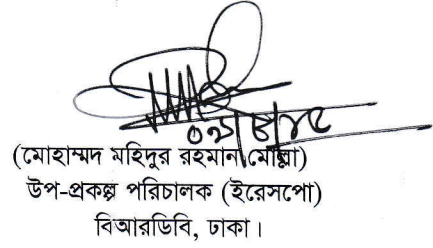 (মোহাম্মদ মহিদুর রহমান মোল্লা)
উপ-প্রকল্প পরিচালক (ইরেসপো)
বিআরডিবি, ঢাকা।